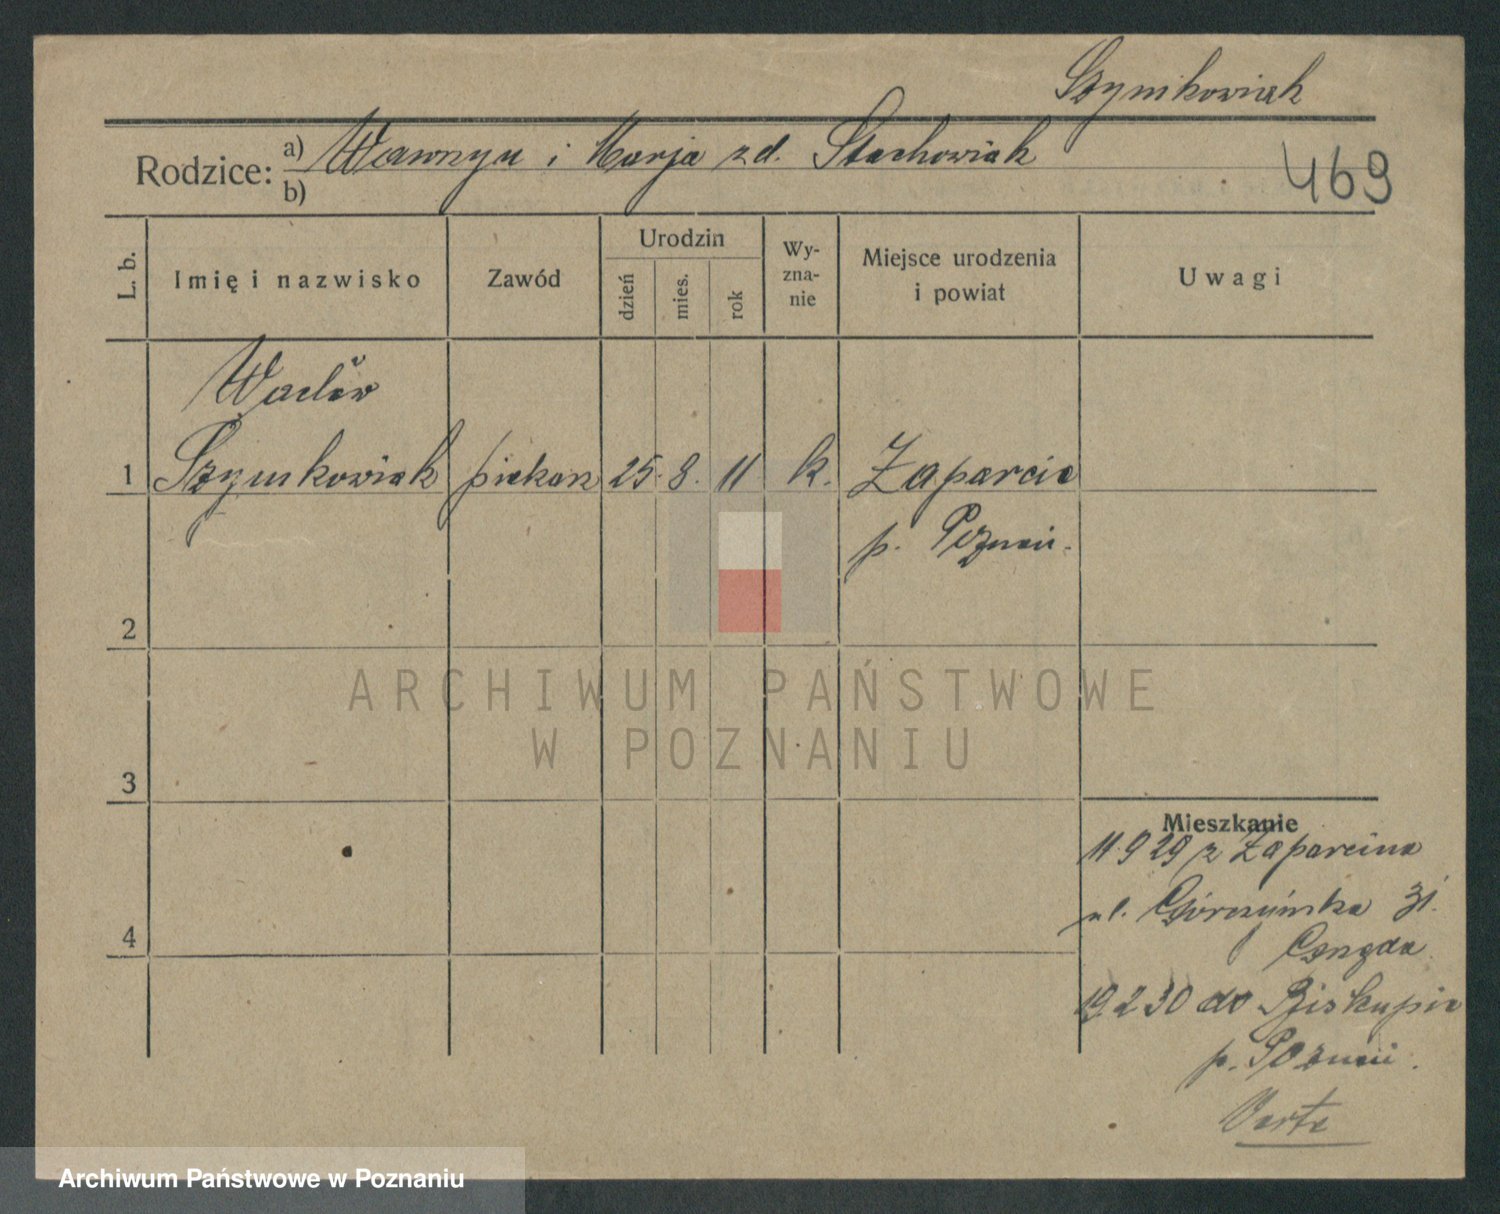 Szymkowiak
Rodzice: a) Wawrzyn i Marja zd. Stachowiak
b)
469
L. b.
Imię i nazwisko
Zawód
Urodzin
dzień
mies.
rok
Wy-
zna-
nie
Miejsce urodzenia
i powiat
Uwagi
Wacław
1 Szymkowiak piekarz 25. 8. 11 k. Zaparcie
p. Poznań.
2
ARCHIWUM PAŃSTWOWE
W POZNANIU
3
Mieszkanie
11 9 29 z Zaparcina
ul. Górczyńska 31.
4
19 2 30 do Biskupie
p. Poznań.
Verte
Archiwum Państwowe w Poznaniu